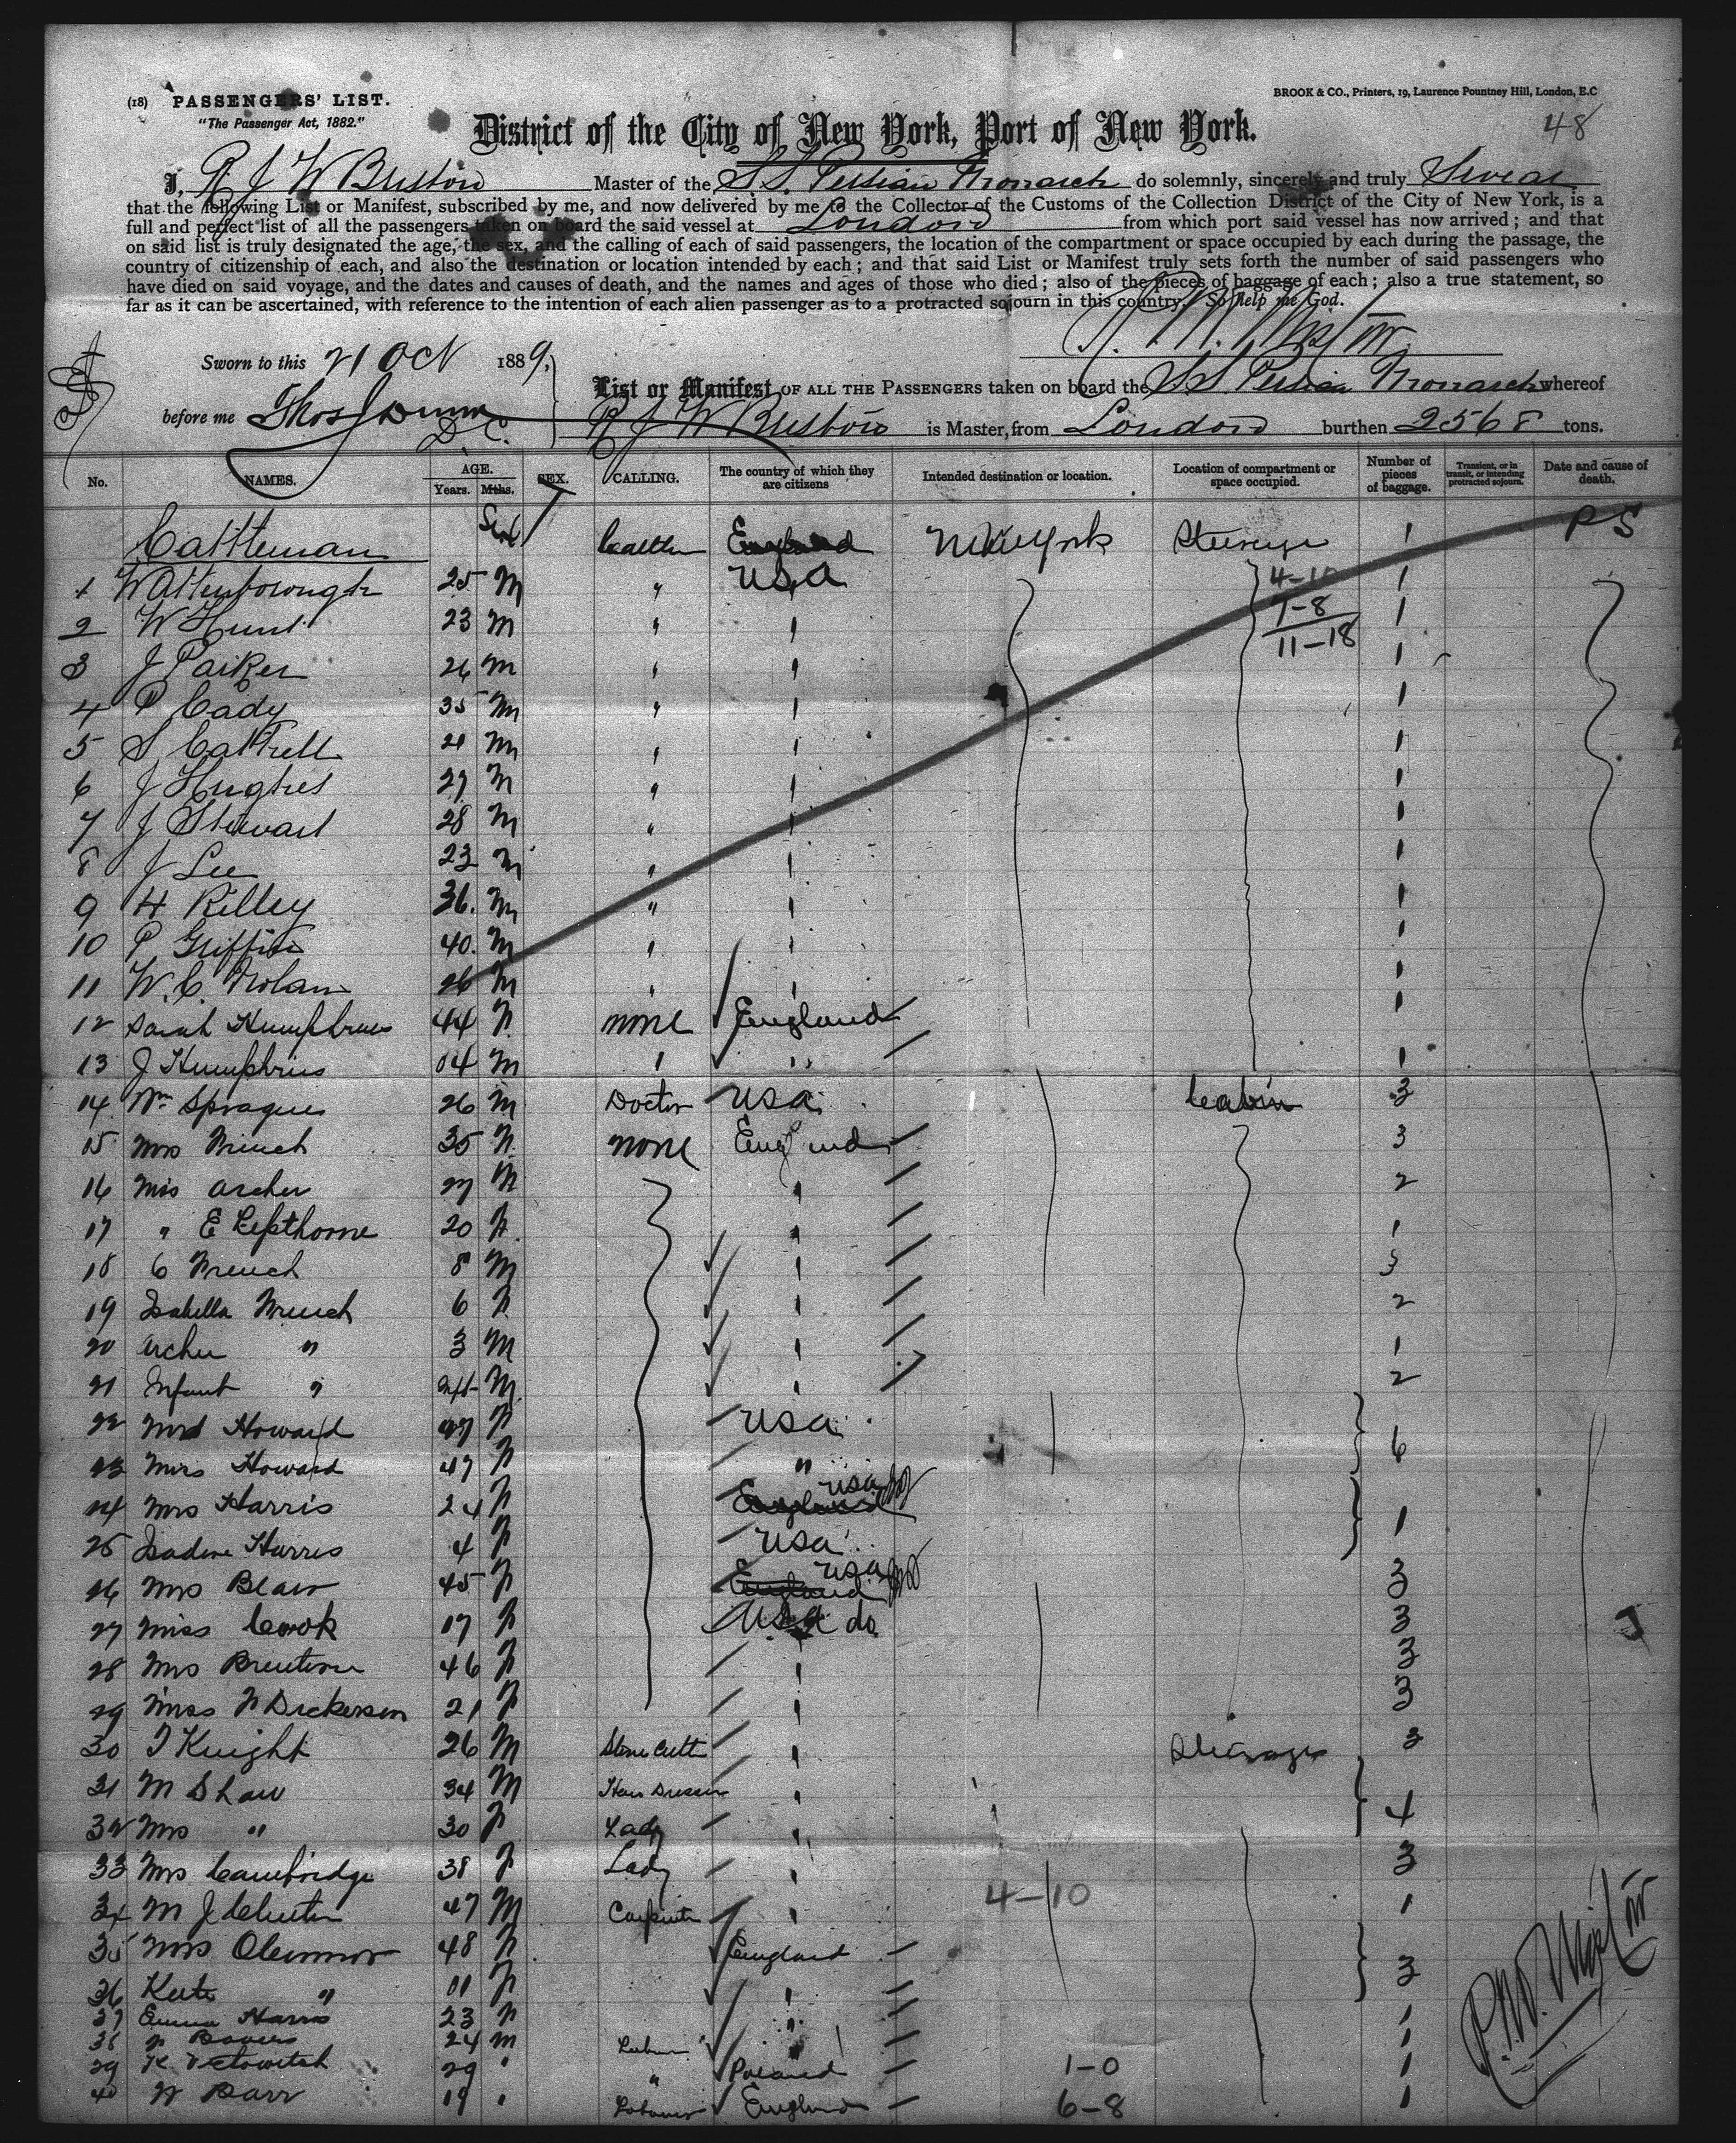 (18) PASSENGERS' LIST.
BROOK & CO., Printers, 19, Laurence Pountney Hill, London, E.C
"The Passenger Act, 1882."
48
District of the City of New York, Port of New York.
I, R J W Bristow Master of the S.S. Persian Monarch do solemnly, sincerely and truly Swear
that the following List or Manifest, subscribed by me, and now delivered by me to the Collector of the Customs of the Collection District of the City of New York, is a
full and perfect list of all the passengers taken on board the said vessel at London from which port said vessel has now arrived; and that
on said list is truly designated the age, the sex, and the calling of each of said passengers, the location of the compartment or space occupied by each during the passage, the
country of citizenship of each, and also the destination or location intended by each; and that said List or Manifest truly sets forth the number of said passengers who
have died on said voyage, and the dates and causes of death, and the names and ages of those who died; also of the pieces of baggage of each; also a true statement, so
far as it can be ascertained, with reference to the intention of each alien passenger as to a protracted sojourn in this country. So help me God.
Sworn to this 21 Oct 1889,
List or Manifest OF ALL THE PASSENGERS taken on board the SS Persian Monarch whereof
before me Thos J Dunn
D.C.
R J W Bristow is Master, from London burthen 2568 tons.
No. NAMES. AGE. Years. Mths. SEX. CALLING. The country of which they are citizens Intended destination or location. Location of compartment or space occupied. Number of pieces of baggage. Transient, or in transit, or intending protracted sojourn. Date and cause of death.
Cattleman Sex England New York Steerage 1 PS
1 W Attenborough 25 M " USA 4-10 1
2 W Hunt 23 M " " 7-8 1
11-18
3 J Parker 26 M " " 1
4 P Cady 35 M " " 1
5 S Cattrell 21 M " " 1
6 J Hughes 27 M " " 1
7 J Stewart 28 M " " 1
8 J Lee 23 M " " 1
9 H Rilley 36. M " " 1
10 P Griffin 40. M " " 1
11 W. C. Nolan 26 M " " 1
12 Sarah Humphries 44 F none England 1
13 J Humphries 04 M " " 1
14 Wm Sprague 26 M Doctor USA Cabin 3
15 Mrs Wrench 35 F. none England 3
16 Mis Archer 27 " 2
17 " E 20 F. " 1
18 C Wrench 8 M " 3
19 Isabella Wrench 6 F " 2
20 Archer " 3 M " 1
21 Infant " Inft M " 2
22 Howard F USA
23 Howard 47 F " 6
24 Mrs Harris 24 F England USA
25 Harris 4 F USA 1
26 Mrs Blair 45 F England USA 3
27 Miss Cook 17 F USA do 3
28 Mrs 46 F " 3
29 Miss F Dickerson 21 F " 3
30 T Knight 26 M Stone Cutter " Steerage 3
31 M Shaw 34 M Hair Dresser "
32 Mrs " 30 F Lady " 4
33 Mrs Cambridge 38 F Lady " 3
34 M J 47 M Carpenter " 4-10 1
35 Mrs 48 F England
36 " 11 F " 3
37 Emma Harris 23 F " 1
38 24 M " 1
39 29 " " Poland 1-0 1
40 W Barr 19 " Labourer England 6-8 1